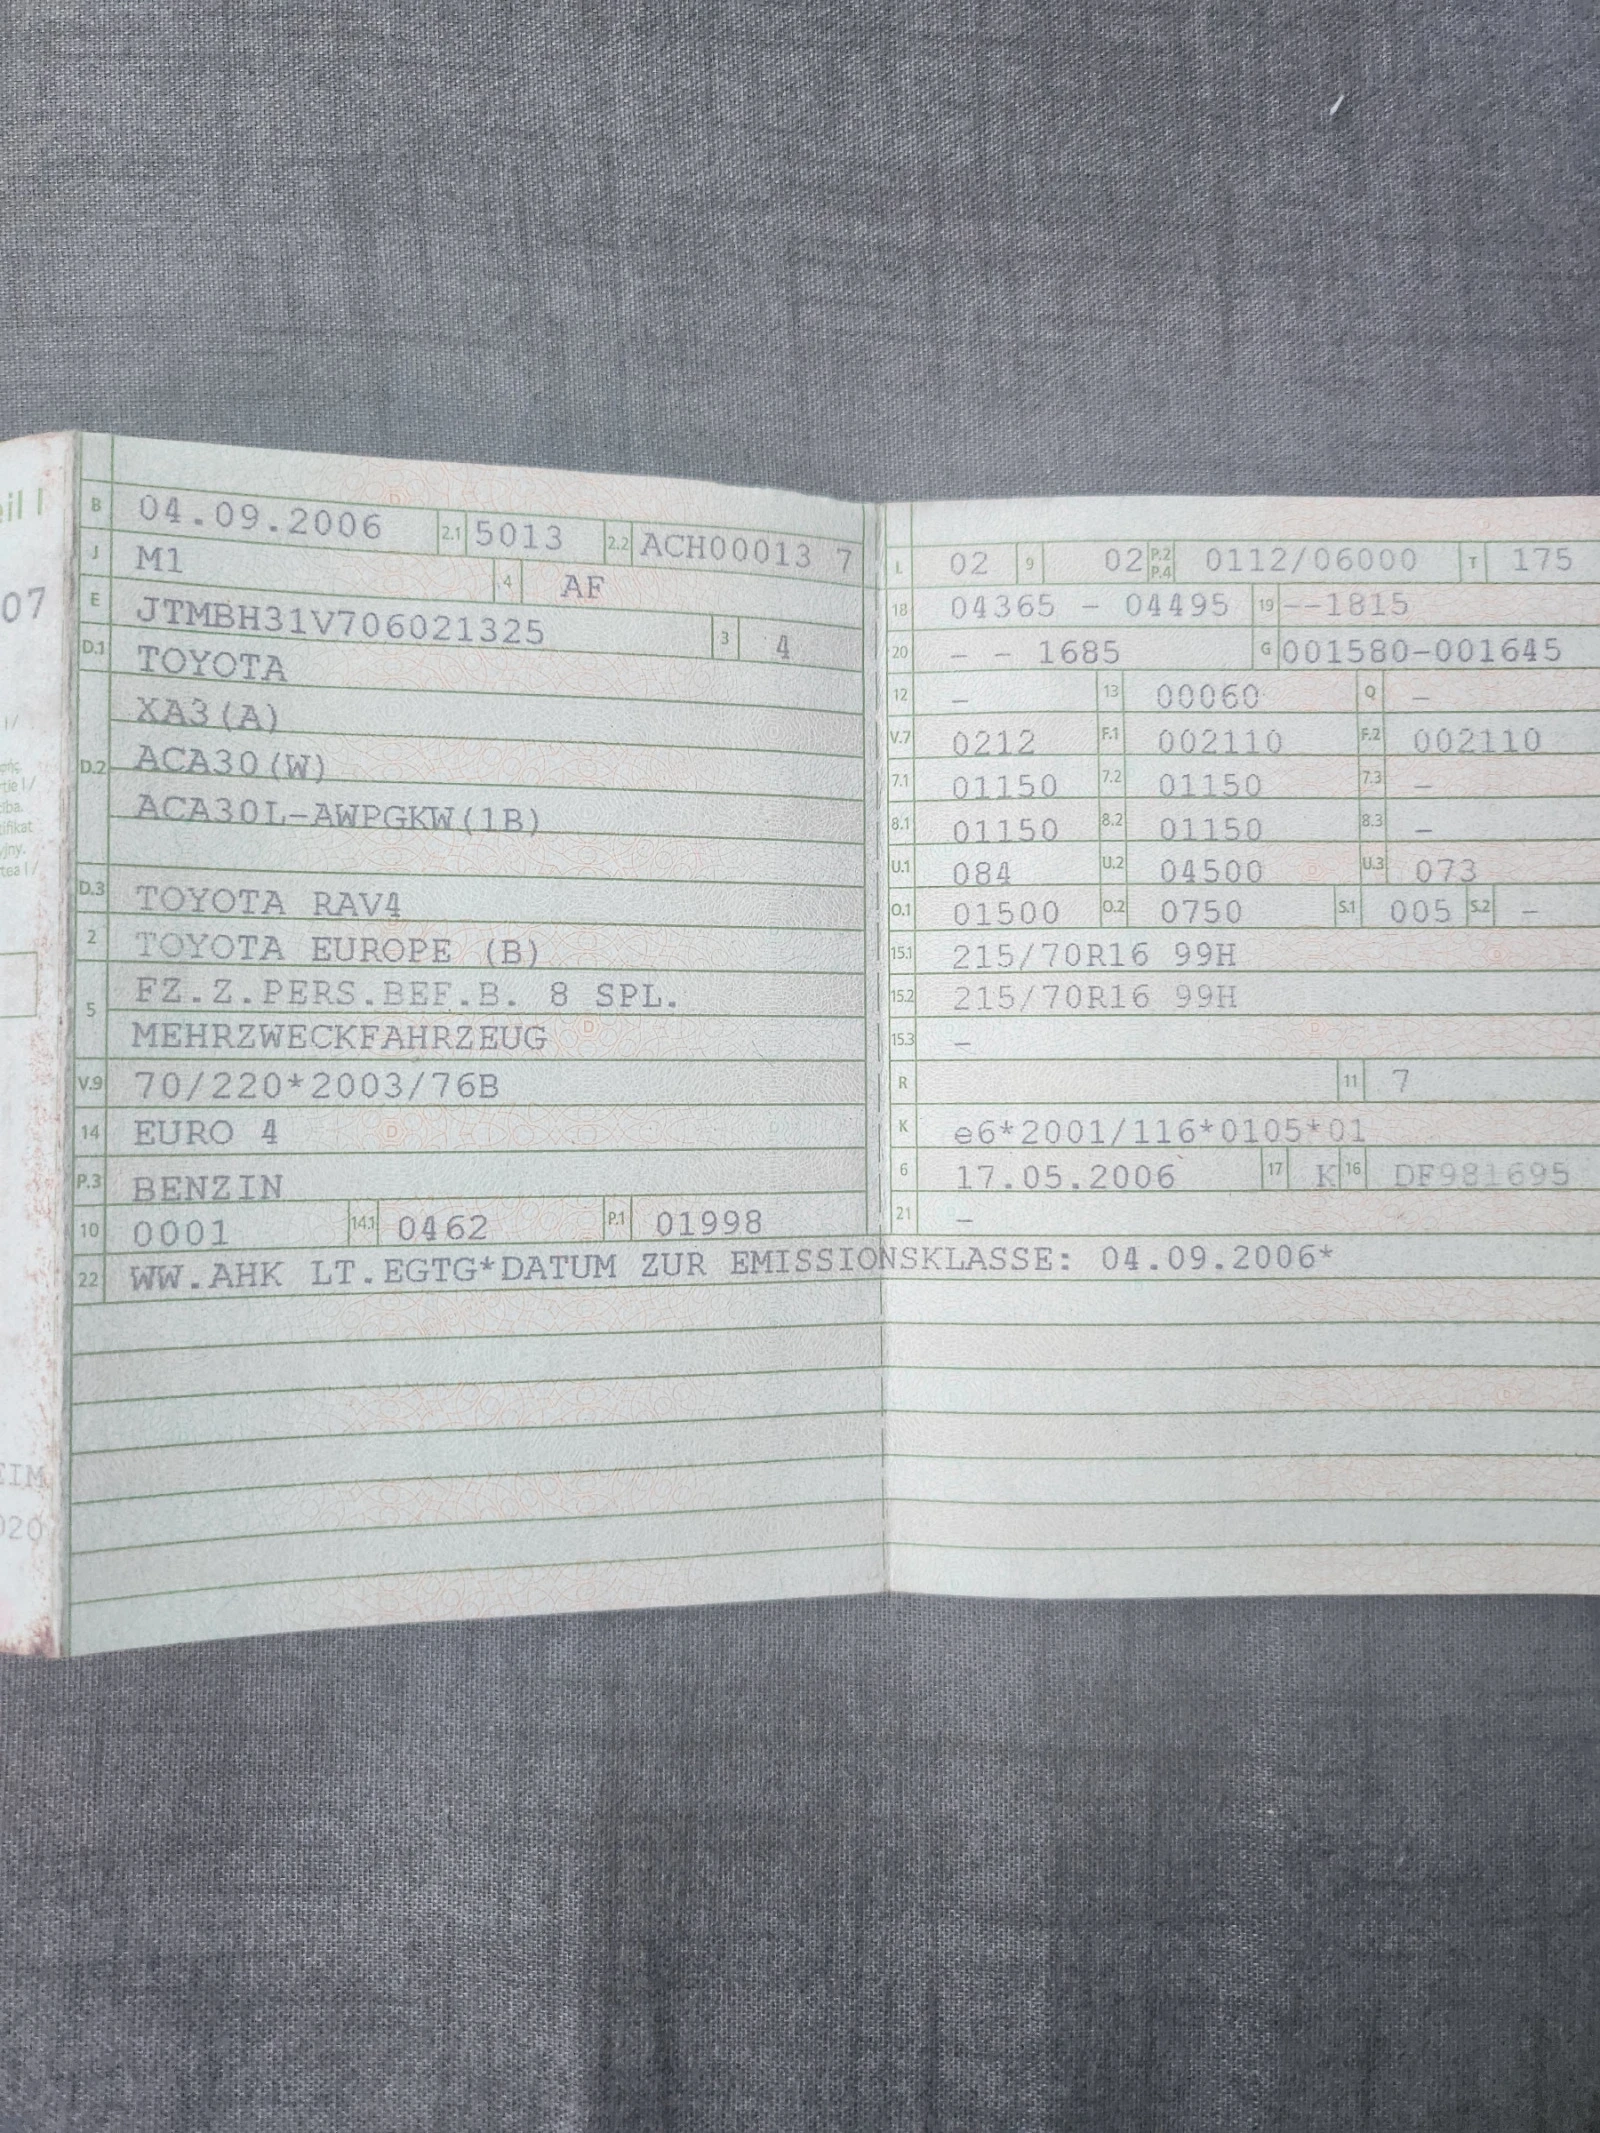 eil I
07
EIM
020
B 04.09.2006 2.1 5013 2.2 ACH00013 7
J M1 4 AF
E JTMBH31V706021325 3 4
D.1 TOYOTA
XA3(A)
D.2 ACA30(W)
ACA30L-AWPGKW(1B)
D.3 TOYOTA RAV4
2 TOYOTA EUROPE (B)
5 FZ.Z.PERS.BEF.B. 8 SPL.
MEHRZWECKFAHRZEUG
V.9 70/220*2003/76B
14 EURO 4
P.3 BENZIN
10 0001 14.1 0462 P.1 01998
22 WW.AHK LT.EGTG*DATUM ZUR EMISSIONSKLASSE: 04.09.2006*
L 02 9 02 P.2 P.4 0112/06000 T 175
18 04365 - 04495 19 --1815
20 - - 1685 G 001580-001645
12 - 13 00060 Q -
V.7 0212 F.1 002110 F.2 002110
7.1 01150 7.2 01150 7.3 -
8.1 01150 8.2 01150 8.3 -
U.1 084 U.2 04500 U.3 073
O.1 01500 O.2 0750 S.1 005 S.2 -
15.1 215/70R16 99H
15.2 215/70R16 99H
15.3 -
R 11 7
K e6*2001/116*0105*01
6 17.05.2006 17 K 16 DF981695
21 -